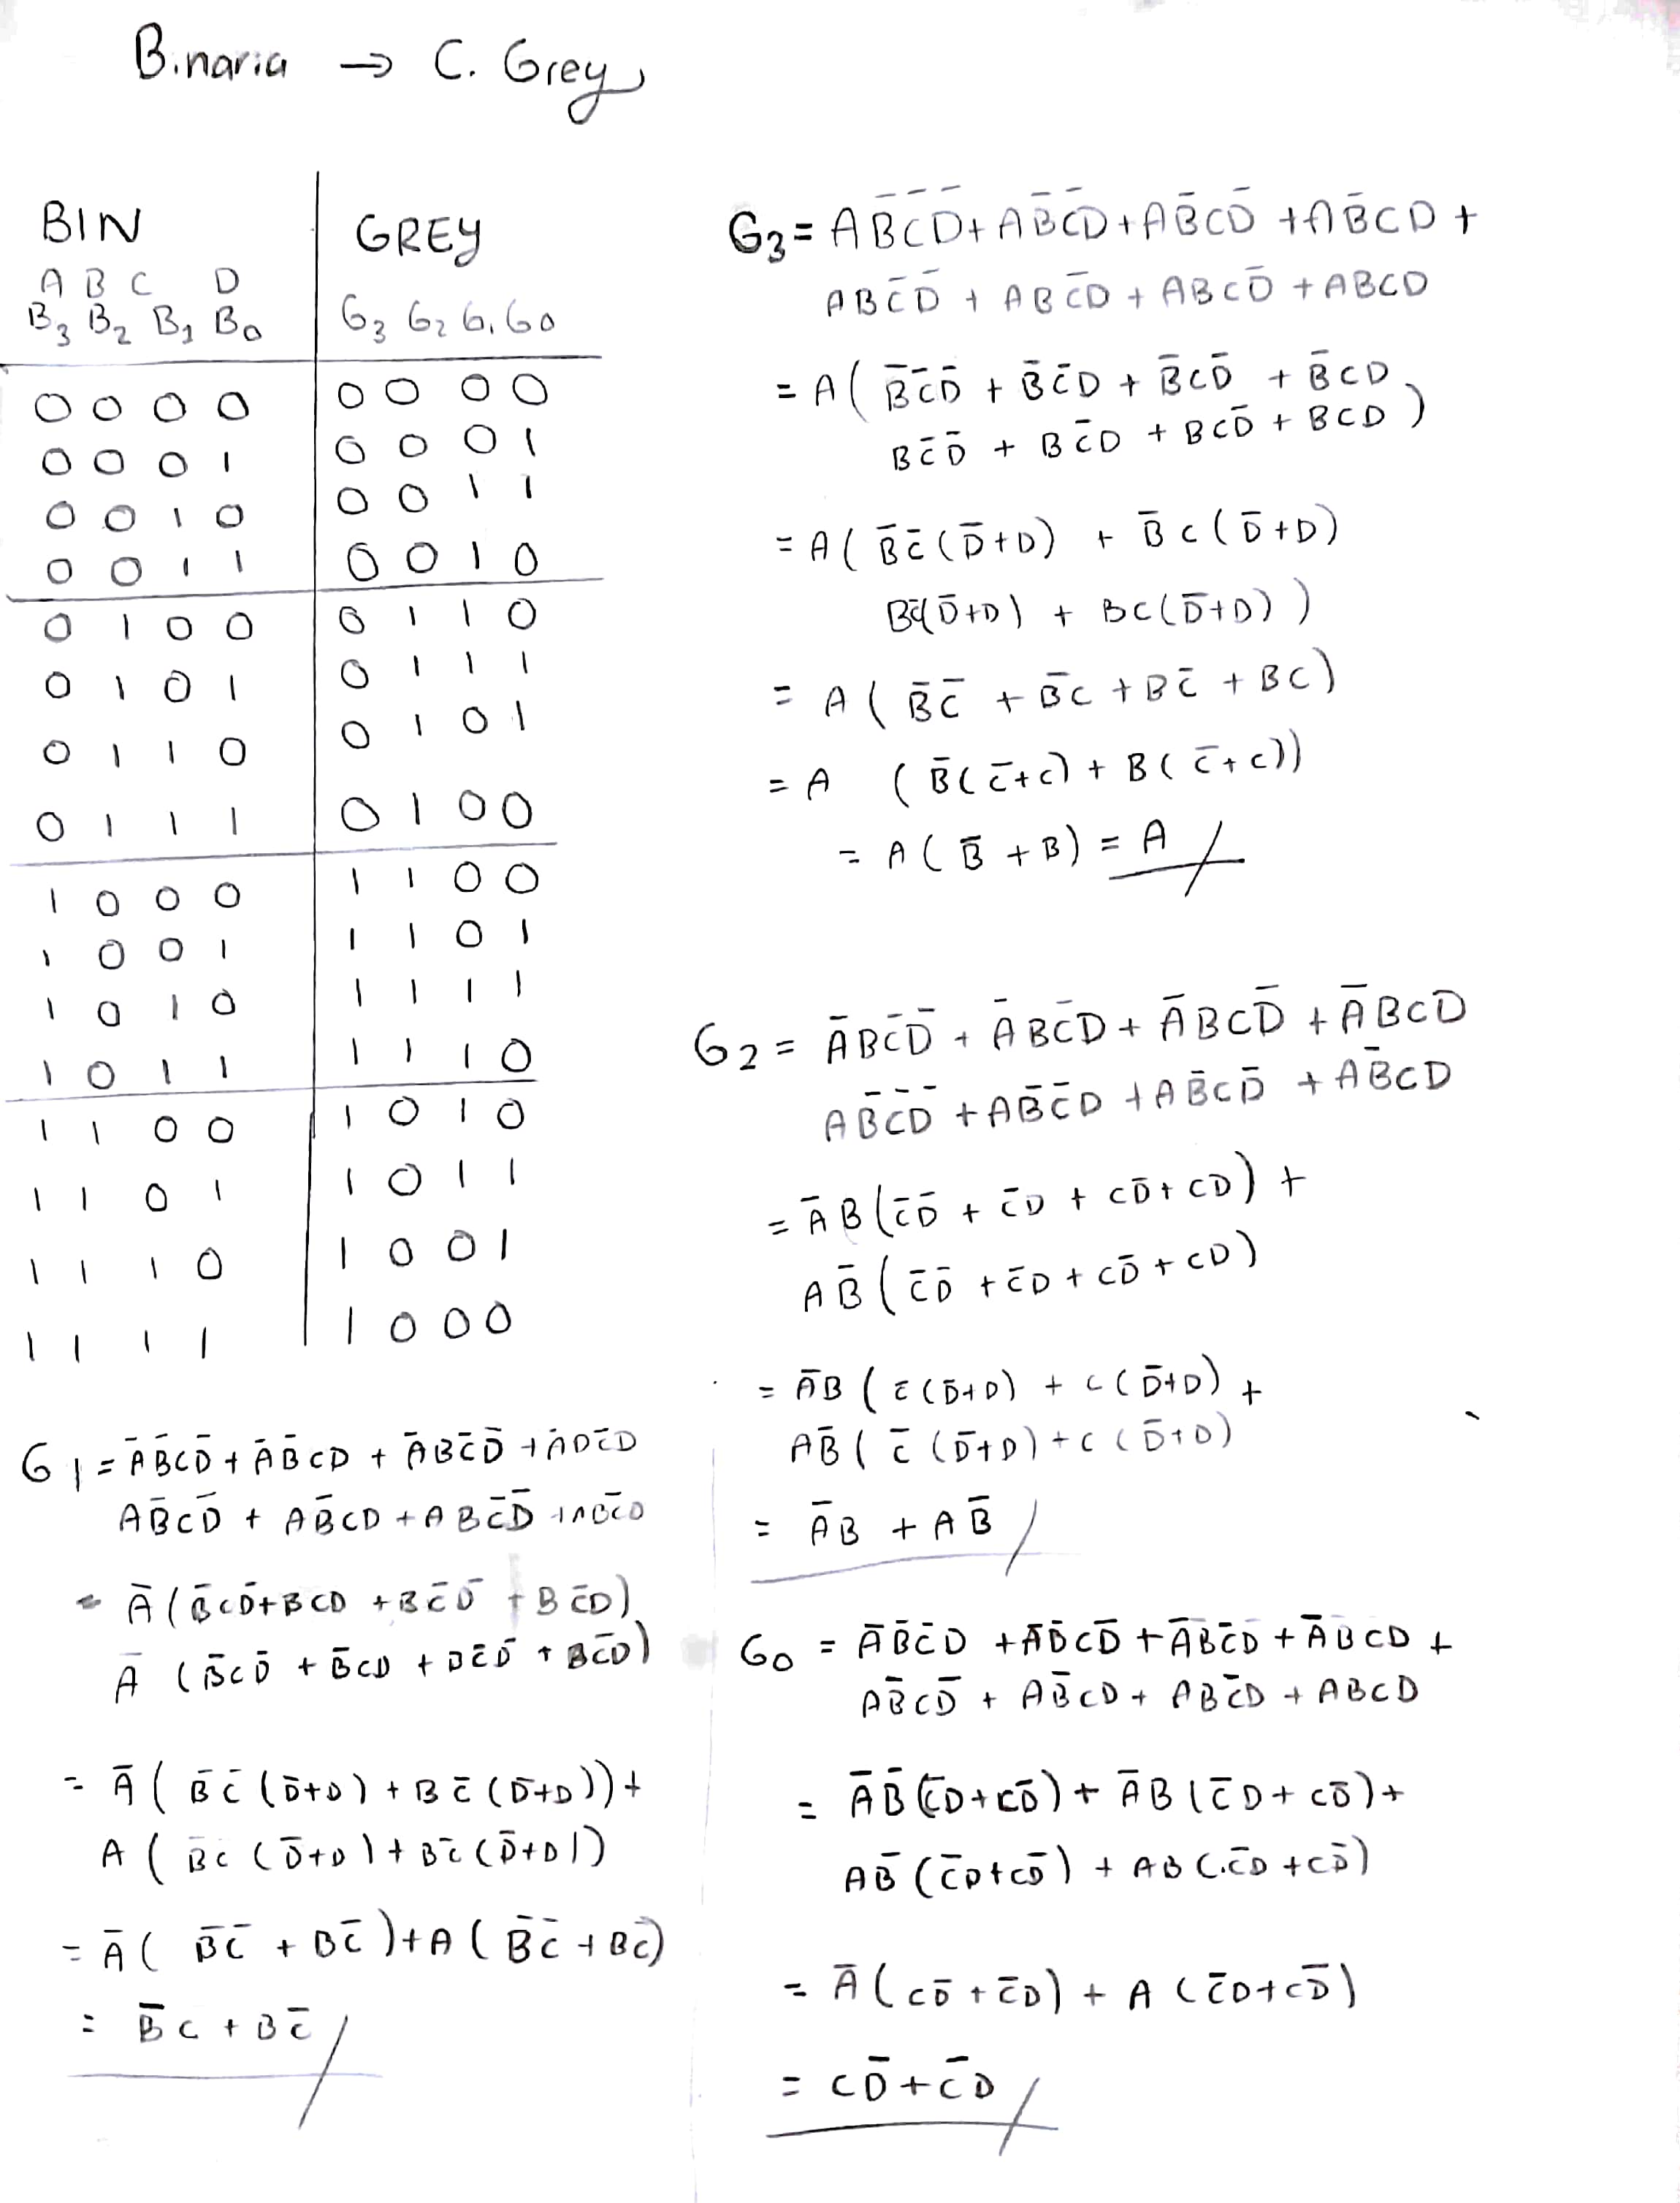 Binaria → C. Grey
BIN | GREY
A B C D
B₃ B₂ B₁ B₀ | G₃ G₂ G₁ G₀
0 0 0 0 | 0 0 0 0
0 0 0 1 | 0 0 0 1
0 0 1 0 | 0 0 1 1
0 0 1 1 | 0 0 1 0
0 1 0 0 | 0 1 1 0
0 1 0 1 | 0 1 1 1
0 1 1 0 | 0 1 0 1
0 1 1 1 | 0 1 0 0
1 0 0 0 | 1 1 0 0
1 0 0 1 | 1 1 0 1
1 0 1 0 | 1 1 1 1
1 0 1 1 | 1 1 1 0
1 1 0 0 | 1 0 1 0
1 1 0 1 | 1 0 1 1
1 1 1 0 | 1 0 0 1
1 1 1 1 | 1 0 0 0
G₃ = AB̄C̄D̄ + AB̄C̄D + AB̄CD̄ + AB̄CD +
ABC̄D̄ + ABC̄D + ABCD̄ + ABCD
= A( B̄C̄D̄ + B̄C̄D + B̄CD̄ + B̄CD
BC̄D̄ + BC̄D + BCD̄ + BCD )
= A( B̄C̄(D̄+D) + B̄C(D̄+D)
BC̄(D̄+D) + BC(D̄+D))
= A( B̄C̄ + B̄C + BC̄ + BC)
= A (B̄(C̄+C) + B(C̄+C))
= A(B̄ + B) = A
G₂ = ĀBC̄D̄ + ĀBC̄D + ĀBCD̄ + ĀBCD
AB̄C̄D̄ + AB̄C̄D + AB̄CD̄ + AB̄CD
= ĀB(C̄D̄ + C̄D + CD̄ + CD) +
AB̄(C̄D̄ + C̄D + CD̄ + CD)
= ĀB(C̄(D̄+D) + C(D̄+D) +
AB̄(C̄(D̄+D) + C(D̄+D)
= ĀB + AB̄
G₁ = ĀB̄CD̄ + ĀB̄CD + ĀBC̄D̄ + ĀBC̄D
AB̄CD̄ + AB̄CD + ABC̄D̄ + ABC̄D
= Ā(B̄CD̄ + BCD + BC̄D̄ + BC̄D)
Ā(B̄CD̄ + B̄CD + BC̄D̄ + BC̄D)
= Ā(B̄C̄(D̄+D) + BC̄(D̄+D)) +
A(B̄C(D̄+D) + BC̄(D̄+D))
= Ā(B̄C̄ + BC̄) + A(B̄C̄ + BC̄)
= B̄C + BC̄
G₀ = ĀB̄C̄D + ĀB̄CD̄ + ĀBC̄D + ĀBCD +
AB̄CD̄ + AB̄CD + ABC̄D + ABCD
= ĀB̄(C̄D+CD̄) + ĀB(C̄D + CD̄) +
AB̄(C̄D+CD̄) + AB(C̄D + CD̄)
= Ā(CD̄ + C̄D) + A(C̄D + CD̄)
= CD̄ + C̄D